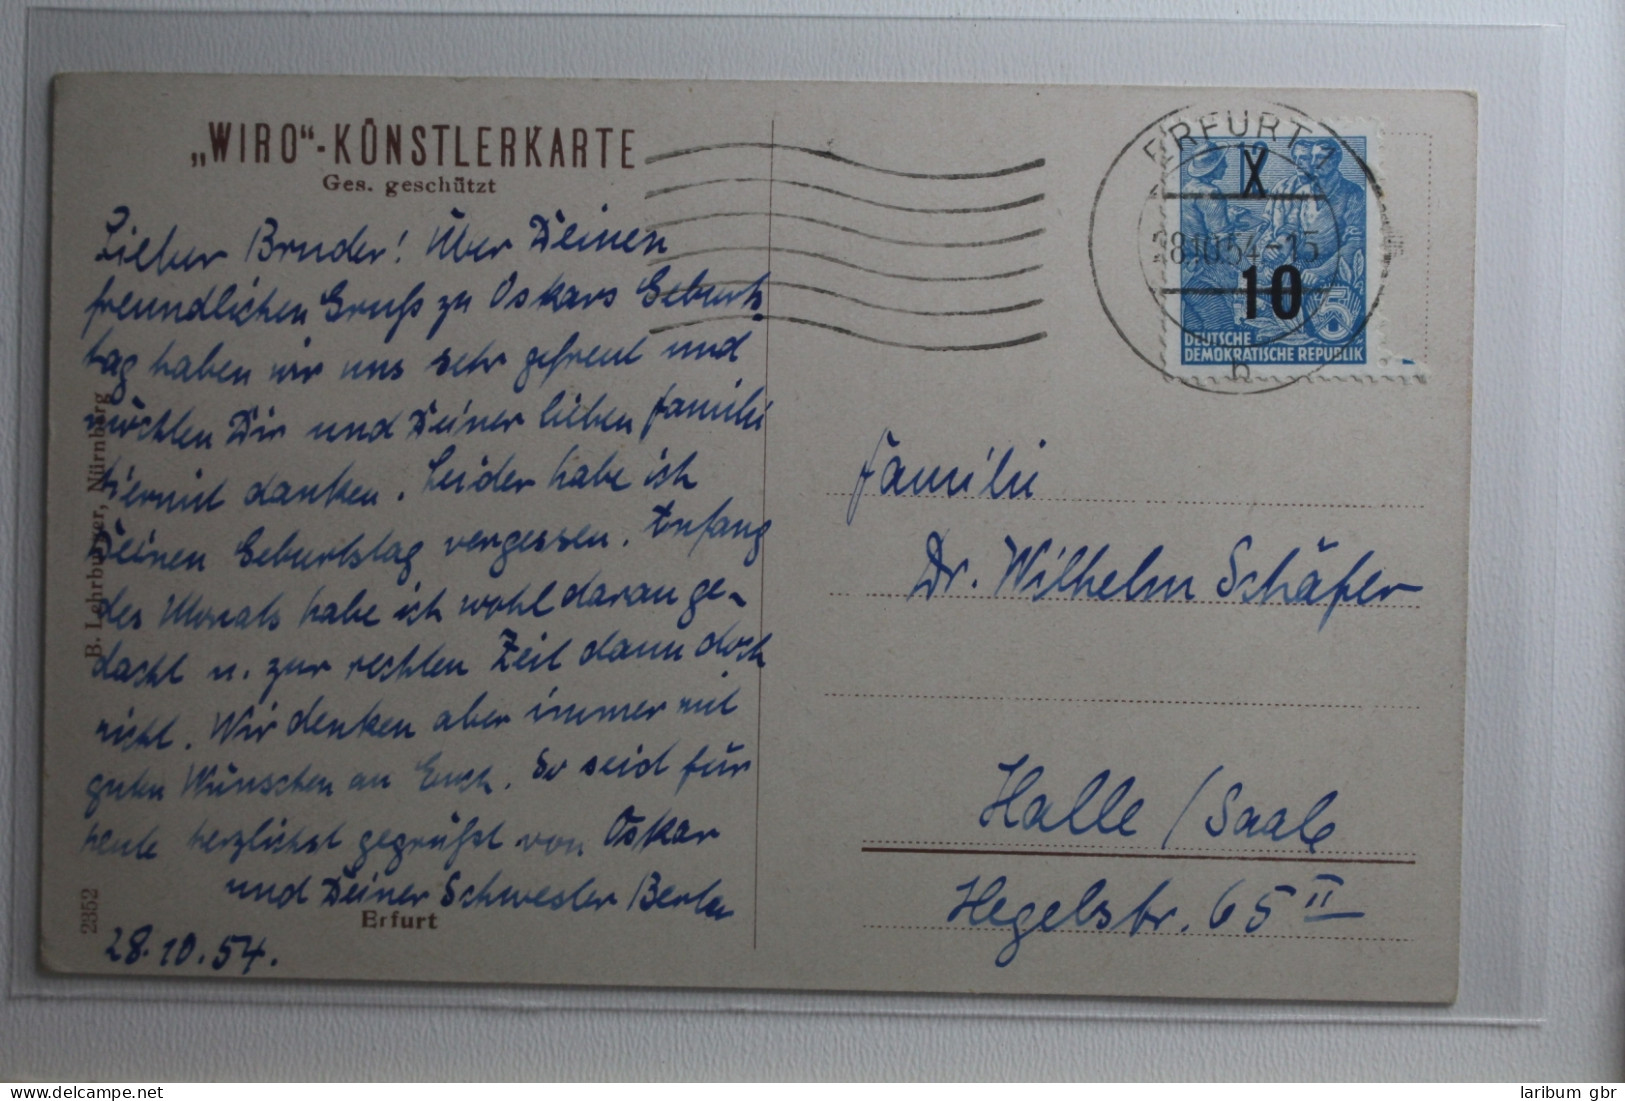 „WIRO“-KÜNSTLERKARTE
Ges. geschützt
Lieber Bruder! Über Deinen
freundlichen Gruß zu Oskars Geburts
tag haben wir uns sehr gefreut und
möchten Dir und Deiner lieben Familie
hiermit danken. Leider habe ich
Deinen Geburtstag vergessen. Anfang
des Monats habe ich wohl daran ge-
dacht u. zur rechten Zeit dann doch
nicht. Wir denken aber immer mit
guten Wünschen an Euch. So seid für
heute herzlichst gegrüßt von Oskar
und Deiner Schwester Berta
Erfurt
28.10.54.
B. Lehrburger, Nürnberg
2352
ERFURT
28.10.54-15
b
X
10
5
DEUTSCHE
DEMOKRATISCHE REPUBLIK
Familie
Dr. Wilhelm Schäfer
Halle/Saale
Hegelstr. 65 II
www.delcampe.net
laribum gbr